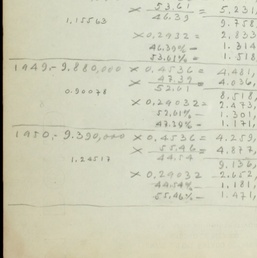 53.61 = 5.231.
46.39
9.758
1,15563
× 0,2432 = 2.833
46.39% - 1.314
53.61% - 1.518
1949.- 9.880,000 × 0,4536 = 4.481,
× 47.39 = 4.036,
52.61
8.518,
0.90078
× 0,24032 = 2.473,
52,61% - 1.301,
47.39% - 1.171,
1950.- 9.390,000 × 0,4536 = 4.259,
× 55.46 = 4.877,
44.54
9.136,
1.24517
× 0,24032 - 2.652,
44.54% - 1.181,
55.46% - 1.471,